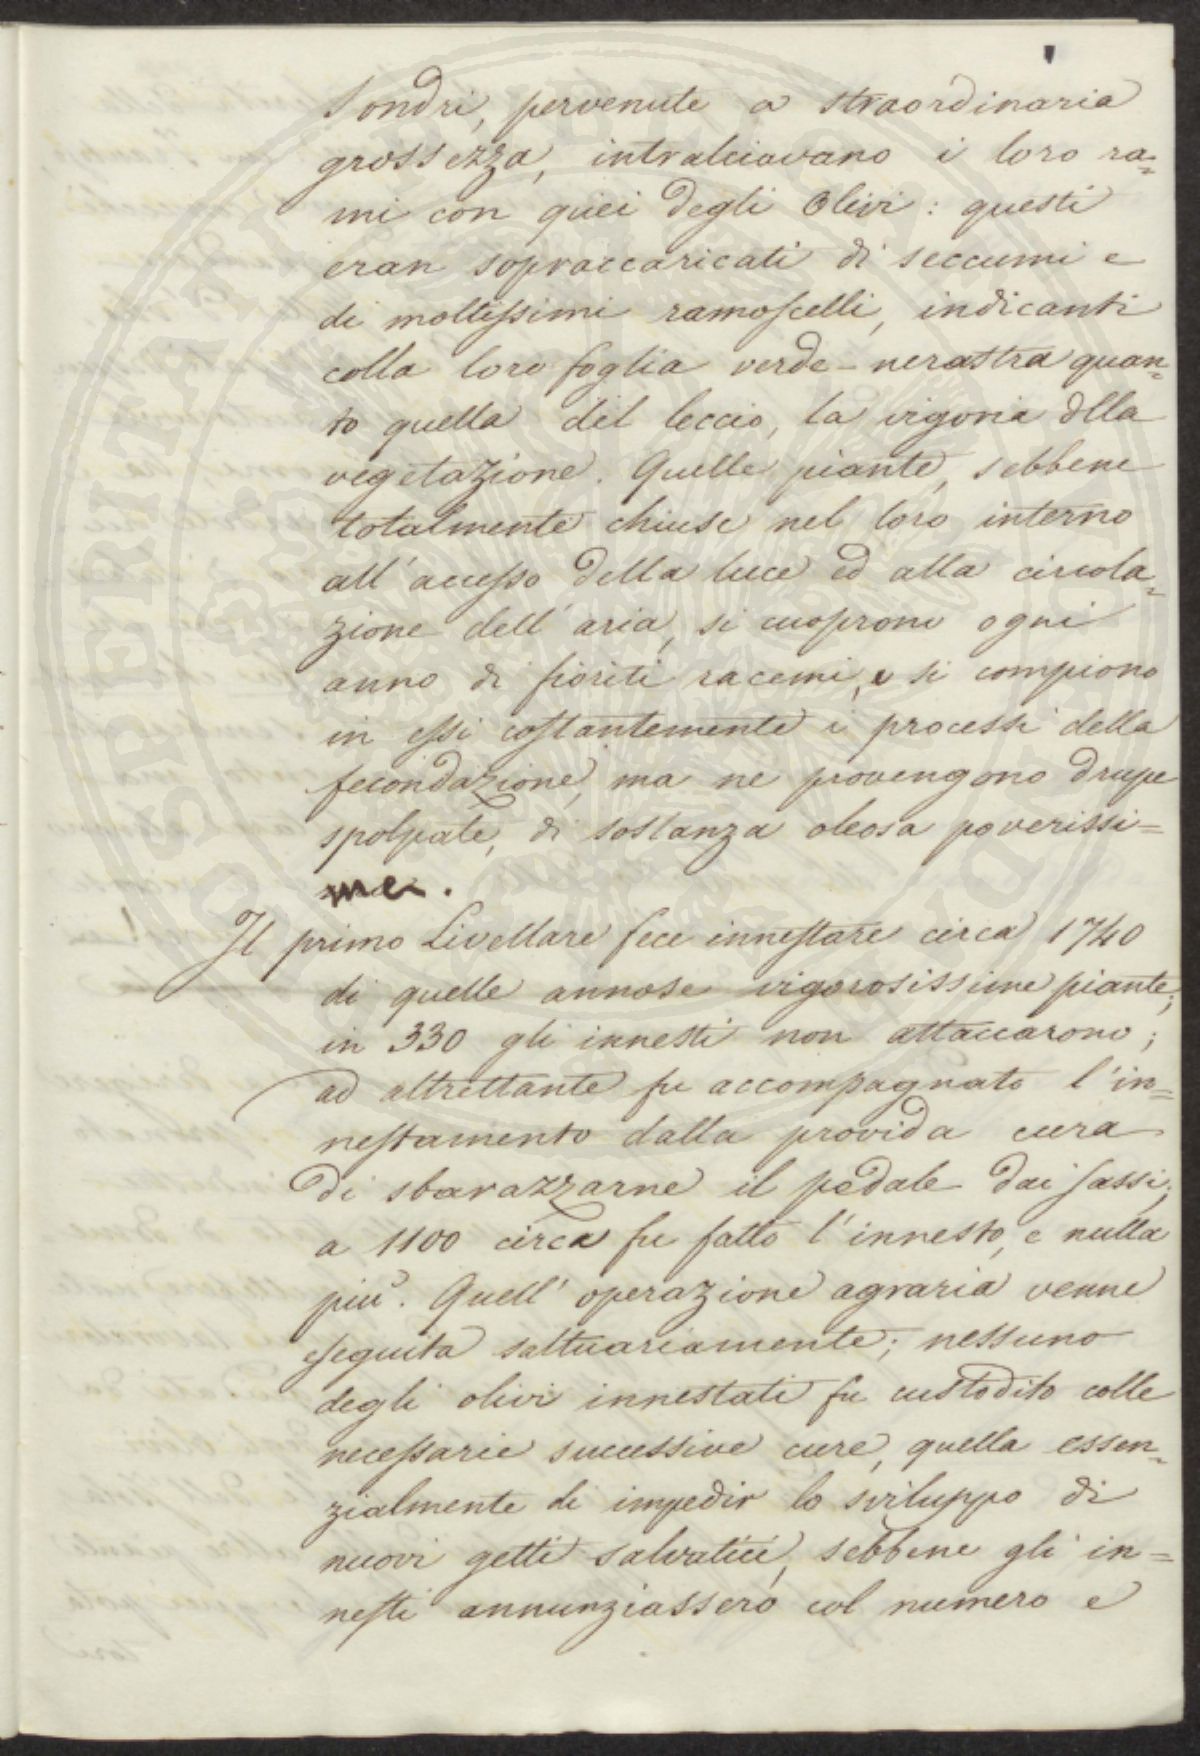 Sondri, pervenute a straordinaria
grossezza, intralciavano i loro ra=
mi con quei degli Olivi: questi
eran sopraccaricati di seccumi e
di moltissimi ramoscelli, indicanti
colla loro foglia verde-nerastra quan=
to quella del leccio, la vigoria dlla
vegetazione. Quelle piante, sebbene
totalmente chiuse nel loro interno
all'accesso della luce ed alla circola=
zione dell'aria, si cuoprono ogni
anno di fioriti racemi, e si compiono
in essi costantemente i processi della
fecondazione, ma ne provengono drupe
spolpate, di sostanza oleosa poverissi=
me.
Il primo Livellare fece innestare circa 1740
di quelle annose vigorosissime piante;
in 330 gli innesti non attaccarono;
ad altrettante fu accompagnato l'in=
nestamento dalla provida cura
di sbarazzarne il pedale dai sassi;
a 1100 circa fu fatto l'innesto, e nulla
più. Quell'operazione agraria venne
eseguita saltuariamente; nessuno
degli olivi innestati fu custodito colle
necessarie successive cure, quella essen=
zialmente di impedir lo sviluppo di
nuovi getti salvatici, sebbene gli in=
nesti annunziassero col numero e
PROSPERITATI PUBLICAE AUGENDAE